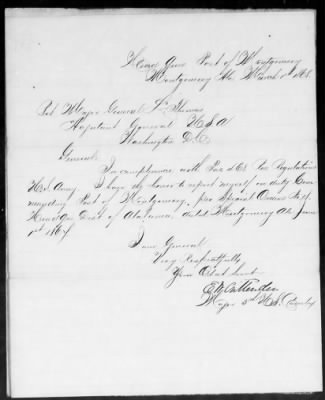 Head Qrs Post of Montgomery
Montgomery Ala March 1st 1868
Major General L. Thomas
Adjutant General U.S.A
Washington D.C.
General.
In compliance with Par Regulations
U.S. Army. I have the honor to report myself on duty Com
manding Post of Montgomery, per Special Orders
Head Qrs Dist of Alabama, dated Montgomery Ala June
1st 1867.
I am General
Very Respectfully
Your Obdt Servt
E Crittenden
Major 5th U.S. Cavalry